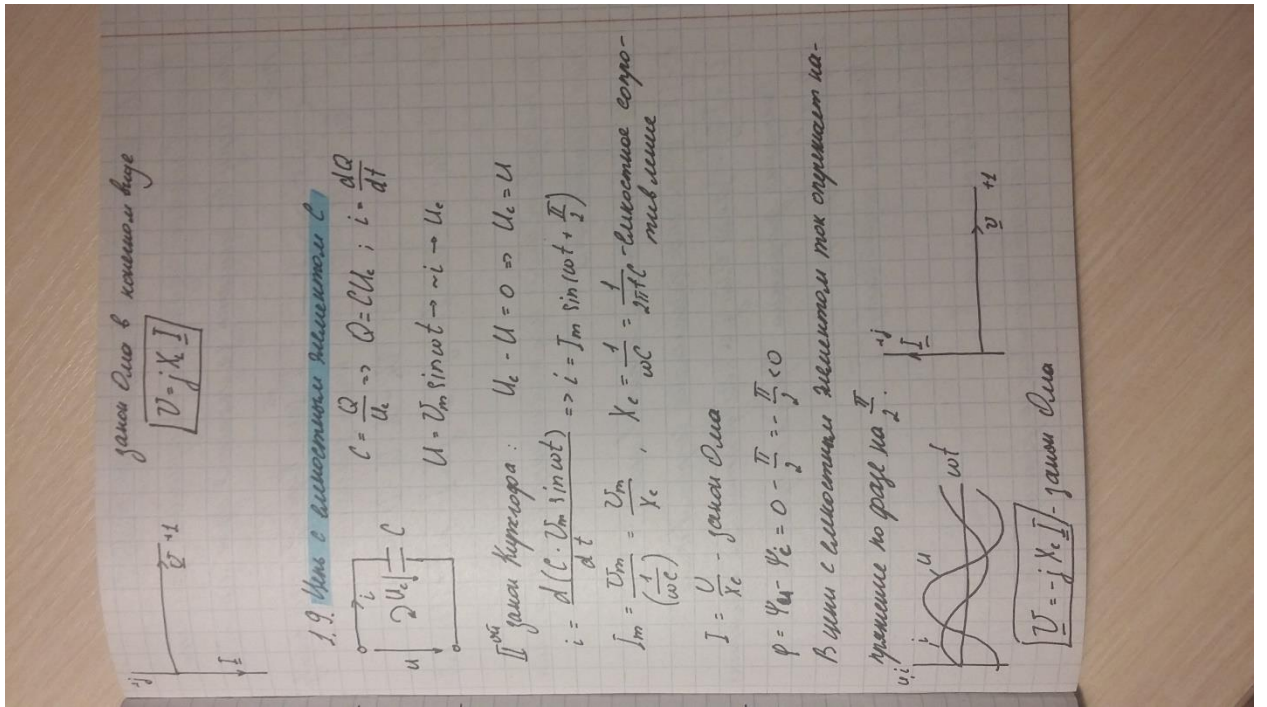 закон Ома в компл-ом виде
U = j X_L I
+j
U +1
I
1.9. Цепь с емкостным элементом C
C = Q/U_c => Q = CU_c ; i = dQ/dt
u i U_c C
U = U_m sin ωt → ~i → U_c
II ой закон Кирхгофа: U_c - U = 0 => U_c = U
i = d(C · U_m sin ωt)/dt => i = I_m sin(ωt + π/2)
I_m = U_m/(1/ωC) = U_m/X_c , X_c = 1/ωC = 1/2πfC - емкостное сопро-
тивление
I = U/X_c - закон Ома
φ = ψ_u - ψ_i = 0 - π/2 = - π/2 < 0
В цепи с емкостным элементом ток опережает на-
пряжение по фазе на π/2.
u,i i u ωt
+j
I
U +1
U = -j X_c I - закон Ома